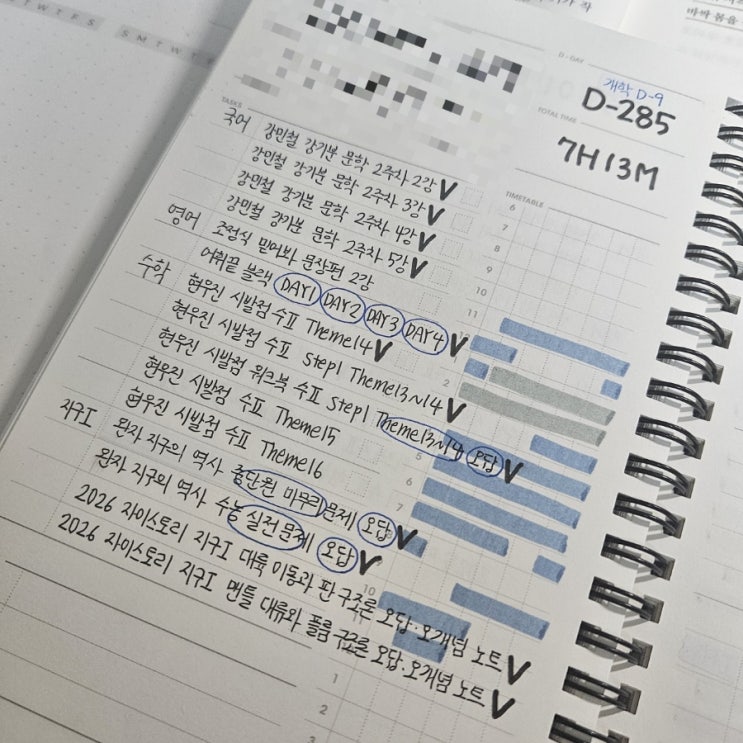 S M T W T F S
S M T W T F
바싹 몸을
D-DAY
개학 D-9
D-285
TOTAL TIME
7H 13M
TASKS
TIMETABLE
국어 강민철 강기분 문학 2주차 2강
강민철 강기분 문학 2주차 3강
강민철 강기분 문학 2주차 4강
강민철 강기분 문학 2주차 5강
영어 조정식 믿어봐 문장편 2강
어휘끝 블랙 DAY1 DAY2 DAY3 DAY4
수학 현우진 시발점 수II Theme14
현우진 시발점 수II Step1 Theme13~14
현우진 시발점 워크북 수II Step1 Theme13~14 오답
현우진 시발점 수II Theme15
현우진 시발점 수II Theme16
지구I 완자 지구의 역사 중단원 마무리 문제 오답
완자 지구의 역사 수능 실전 문제 오답
2026 자이스토리 지구I 대륙 이동과 판 구조론 오답·오개념 노트
2026 자이스토리 지구I 맨틀 대류와 플룸 구조론 오답·오개념 노트
6
7
8
9
10
11
12
2
5
6
7
10
11
1
2
3